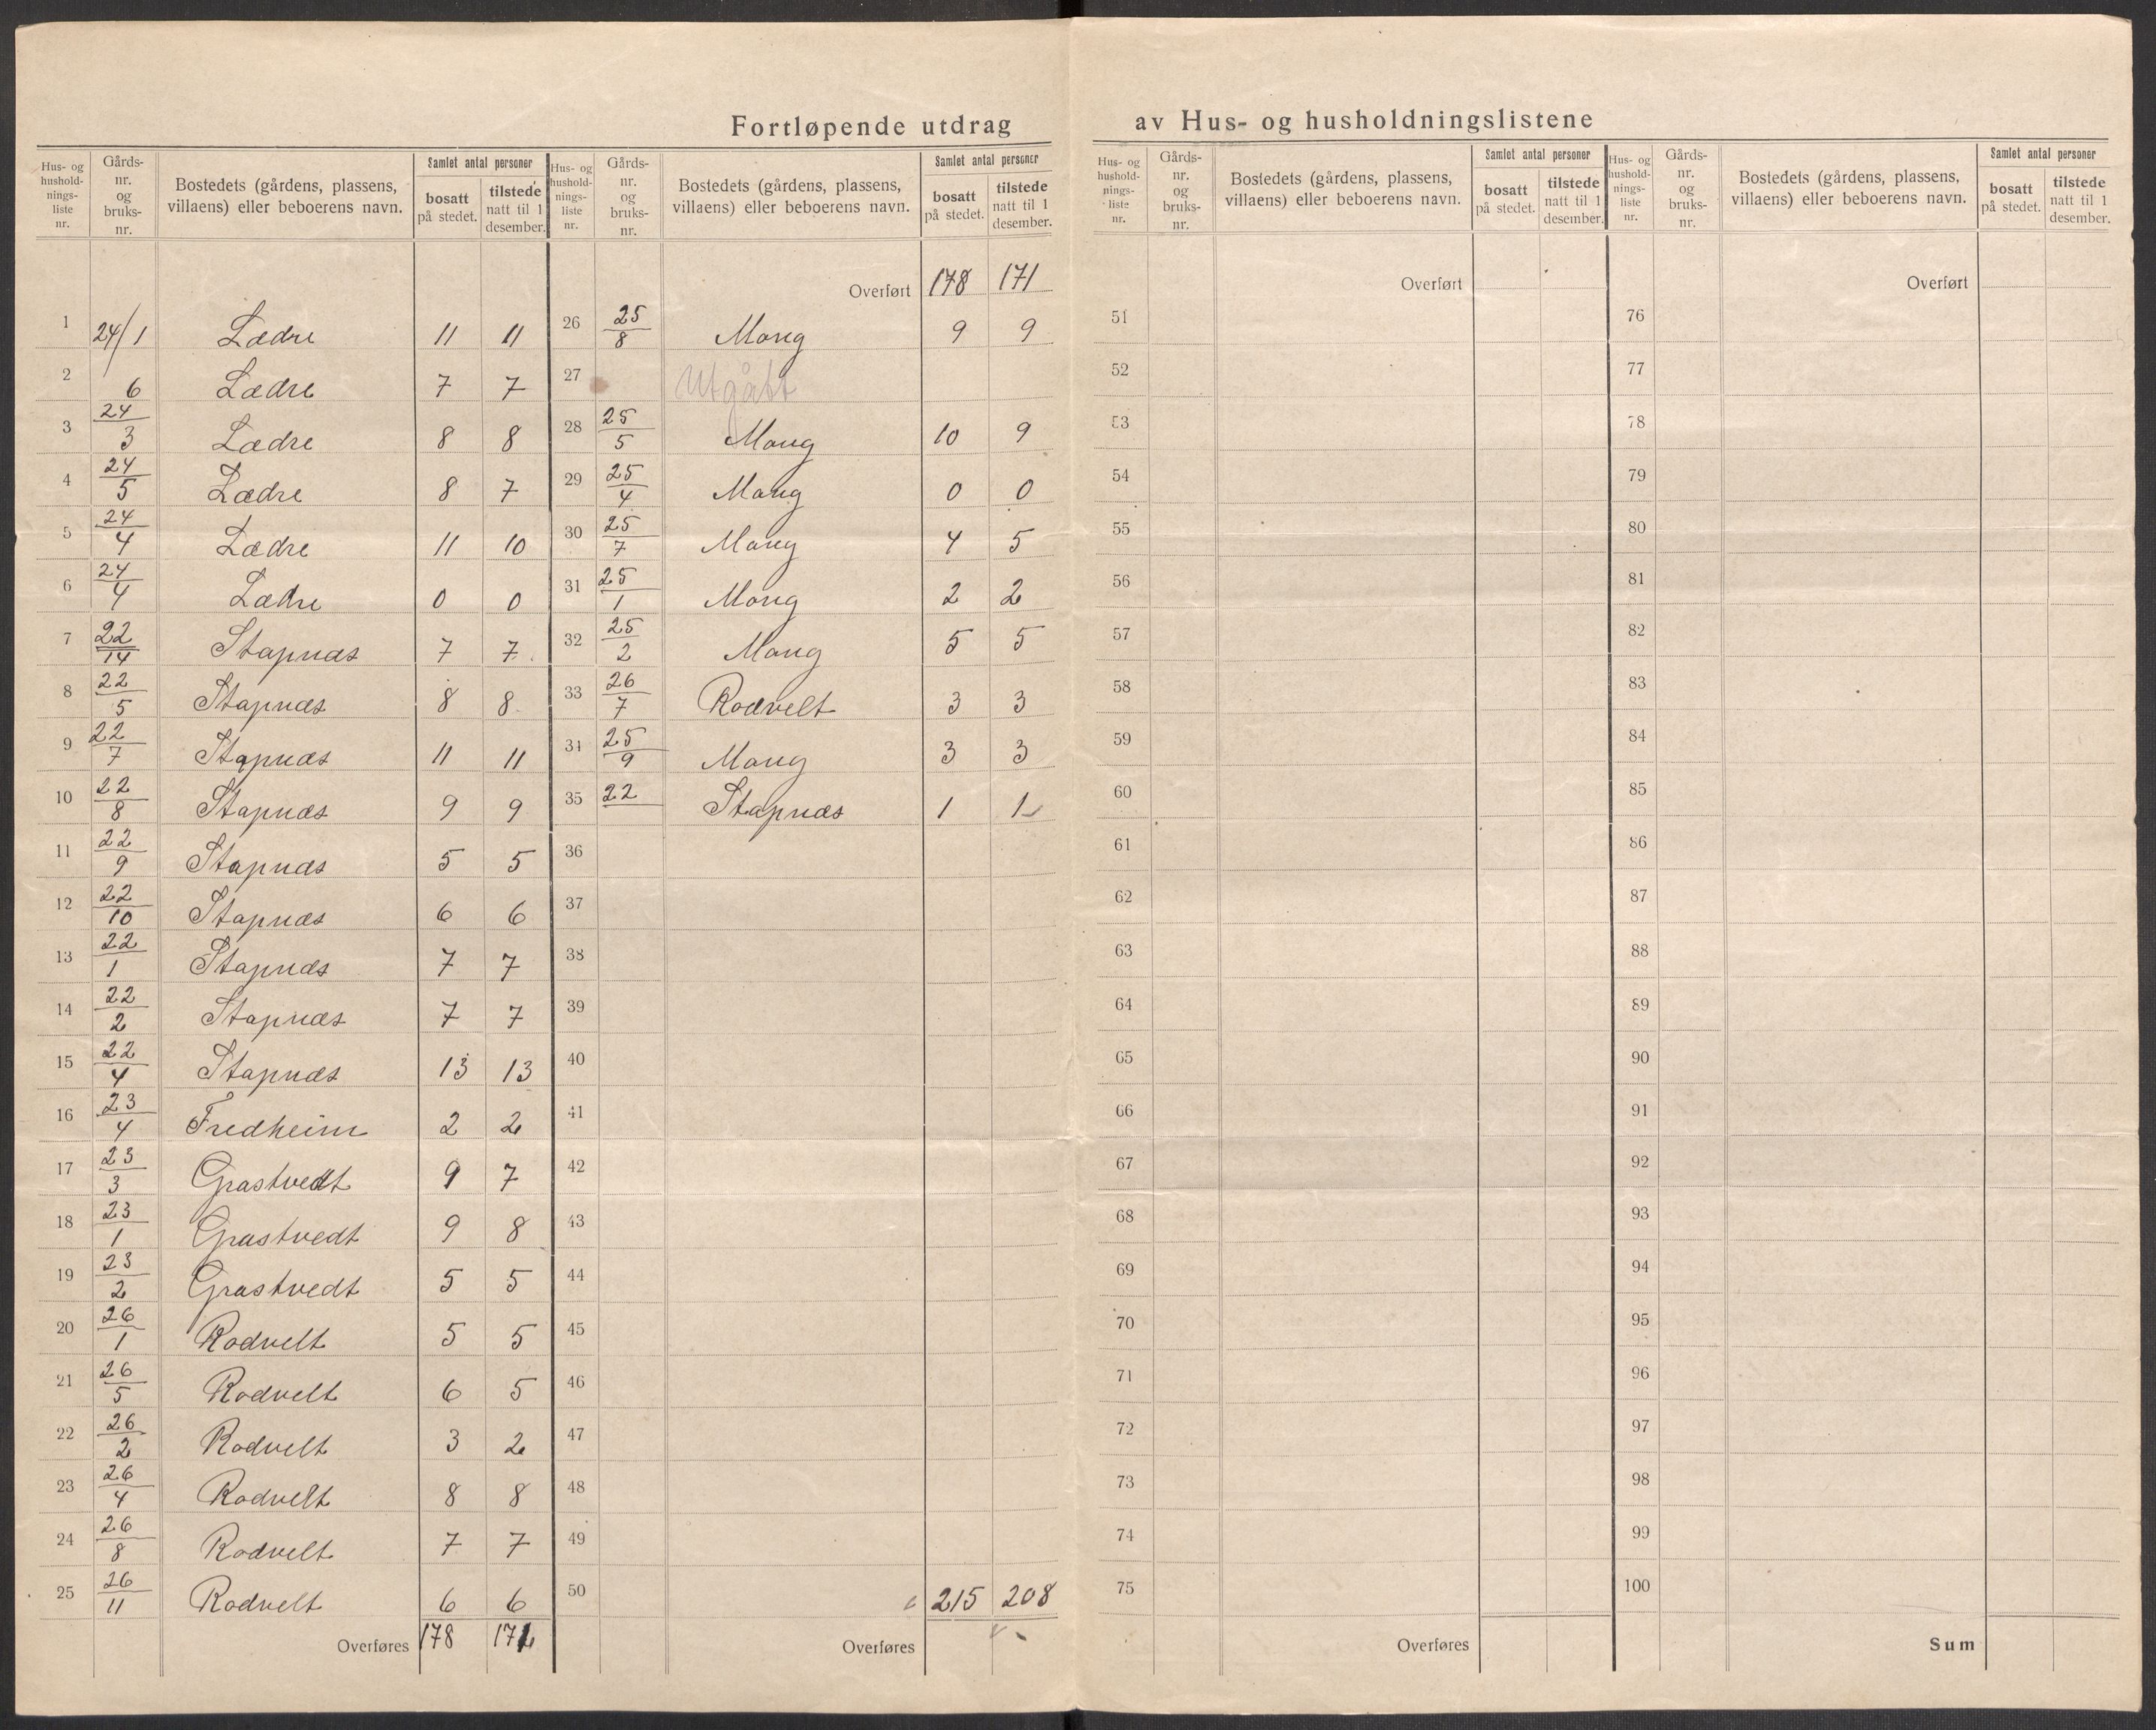 Fortløpende utdrag av Hus- og husholdningslistene
Hus- og hushold-nings-liste nr. | Gårds-nr. og bruks-nr. | Bostedets (gårdens, plassens, villaens) eller beboerens navn. | Samlet antal personer | bosatt på stedet. | tilstede natt til 1 desember.
1 24/1 Lædre 11 11
2 6 Lædre 7 7
3 24/3 Lædre 8 8
4 24/5 Lædre 8 7
5 24/4 Lædre 11 10
6 24/4 Lædre 0 0
7 22/14 Stapnæs 7 7
8 22/5 Stapnæs 8 8
9 22/7 Stapnæs 11 11
10 22/8 Stapnæs 9 9
11 22/9 Stapnæs 5 5
12 22/10 Stapnæs 6 6
13 22/1 Stapnæs 7 7
14 22/2 Stapnæs 7 7
15 22/4 Stapnæs 13 13
16 23/4 Fredheim 2 2
17 23/3 Grastvedt 9 7
18 23/1 Grastvedt 9 8
19 23/2 Grastvedt 5 5
20 26/1 Rodvelt 5 5
21 26/5 Rodvelt 6 5
22 26/2 Rodvelt 3 2
23 26/4 Rodvelt 8 8
24 26/8 Rodvelt 7 7
25 26/11 Rodvelt 6 6
Overføres 178 171
Hus- og hushold-nings-liste nr. | Gårds-nr. og bruks-nr. | Bostedets (gårdens, plassens, villaens) eller beboerens navn. | Samlet antal personer | bosatt på stedet. | tilstede natt til 1 desember.
Overført 178 171
26 25/8 Mong 9 9
27 Utgått
28 25/5 Mong 10 9
29 25/4 Mong 0 0
30 25/7 Mong 4 5
31 25/1 Mong 2 2
32 25/2 Mong 5 5
33 26/7 Rodvelt 3 3
34 25/9 Mong 3 3
35 22 Stapnæs 1 1
36
37
38
39
40
41
42
43
44
45
46
47
48
49
50 215 208
Overføres
Hus- og hushold-nings-liste nr. | Gårds-nr. og bruks-nr. | Bostedets (gårdens, plassens, villaens) eller beboerens navn. | Samlet antal personer | bosatt på stedet. | tilstede natt til 1 desember.
Overført
51
52
53
54
55
56
57
58
59
60
61
62
63
64
65
66
67
68
69
70
71
72
73
74
75
Overføres
Hus- og hushold-nings-liste nr. | Gårds-nr. og bruks-nr. | Bostedets (gårdens, plassens, villaens) eller beboerens navn. | Samlet antal personer | bosatt på stedet. | tilstede natt til 1 desember.
Overført
76
77
78
79
80
81
82
83
84
85
86
87
88
89
90
91
92
93
94
95
96
97
98
99
100
Sum